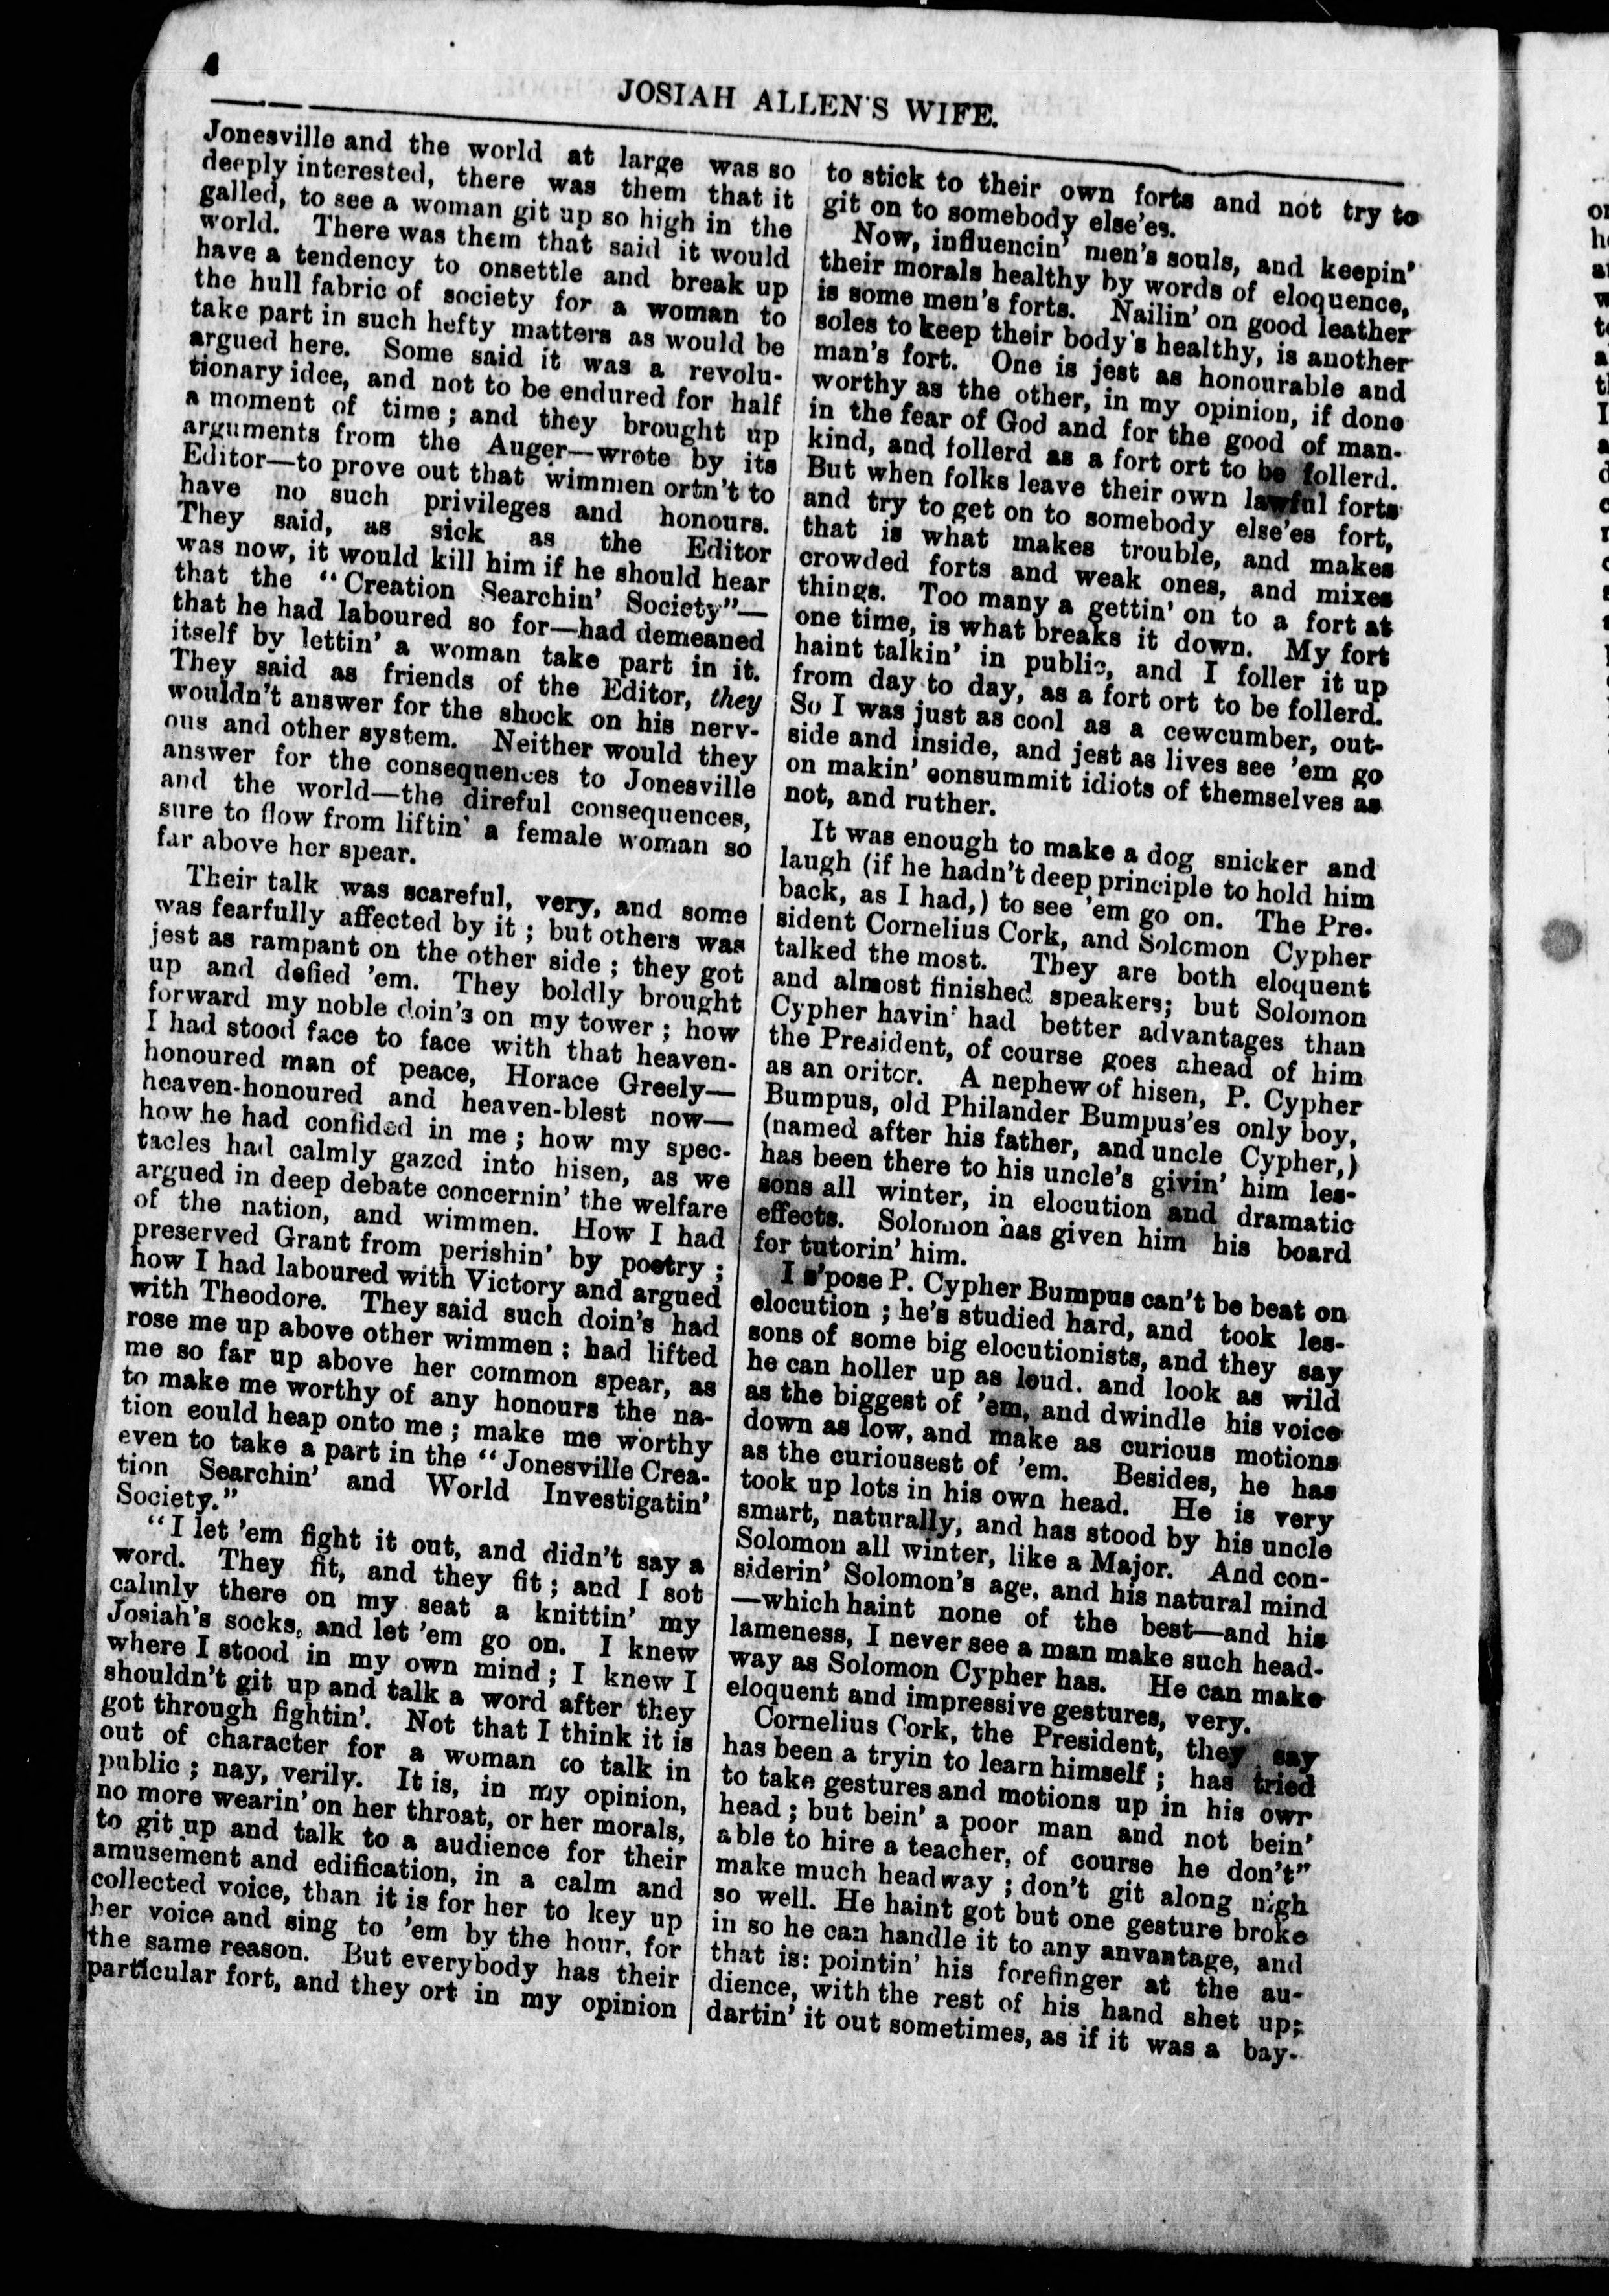 4
JOSIAH ALLEN'S WIFE.
Jonesville and the world at large was so
deeply interested, there was them that it
galled, to see a woman git up so high in the
world. There was them that said it would
have a tendency to onsettle and break up
the hull fabric of society for a woman to
take part in such hefty matters as would be
argued here. Some said it was a revolu-
tionary idee, and not to be endured for half
a moment of time; and they brought up
arguments from the Auger—wrote by its
Editor—to prove out that wimmen ortn't to
have no such privileges and honours.
They said, as sick as the Editor
was now, it would kill him if he should hear
that the "Creation Searchin' Society"—
that he had laboured so for—had demeaned
itself by lettin' a woman take part in it.
They said as friends of the Editor, they
wouldn't answer for the shock on his nerv-
ous and other system. Neither would they
answer for the consequences to Jonesville
and the world—the direful consequences,
sure to flow from liftin' a female woman so
far above her spear.
Their talk was scareful, very, and some
was fearfully affected by it; but others was
jest as rampant on the other side; they got
up and defied 'em. They boldly brought
forward my noble doin's on my tower; how
I had stood face to face with that heaven-
honoured man of peace, Horace Greely—
heaven-honoured and heaven-blest now—
how he had confided in me; how my spec-
tacles had calmly gazed into hisen, as we
argued in deep debate concernin' the welfare
of the nation, and wimmen. How I had
preserved Grant from perishin' by poetry;
how I had laboured with Victory and argued
with Theodore. They said such doin's had
rose me up above other wimmen; had lifted
me so far up above her common spear, as
to make me worthy of any honours the na-
tion could heap onto me; make me worthy
even to take a part in the "Jonesville Crea-
tion Searchin' and World Investigatin'
Society."
"I let 'em fight it out, and didn't say a
word. They fit, and they fit; and I sot
calmly there on my seat a knittin' my
Josiah's socks, and let 'em go on. I knew
where I stood in my own mind; I knew I
shouldn't git up and talk a word after they
got through fightin'. Not that I think it is
out of character for a woman to talk in
public; nay, verily. It is, in my opinion,
no more wearin' on her throat, or her morals,
to git up and talk to a audience for their
amusement and edification, in a calm and
collected voice, than it is for her to key up
her voice and sing to 'em by the hour, for
the same reason. But everybody has their
particular fort, and they ort in my opinion
to stick to their own forts and not try to
git on to somebody else'es.
Now, influencin' men's souls, and keepin'
their morals healthy by words of eloquence,
is some men's forts. Nailin' on good leather
soles to keep their body's healthy, is another
man's fort. One is jest as honourable and
worthy as the other, in my opinion, if done
in the fear of God and for the good of man-
kind, and follerd as a fort ort to be follerd.
But when folks leave their own lawful forts
and try to get on to somebody else'es fort,
that is what makes trouble, and makes
crowded forts and weak ones, and mixes
things. Too many a gettin' on to a fort at
one time, is what breaks it down. My fort
haint talkin' in public, and I foller it up
from day to day, as a fort ort to be follerd.
So I was just as cool as a cewcumber, out-
side and inside, and jest as lives see 'em go
on makin' consummit idiots of themselves as
not, and ruther.
It was enough to make a dog snicker and
laugh (if he hadn't deep principle to hold him
back, as I had,) to see 'em go on. The Pre-
sident Cornelius Cork, and Solomon Cypher
talked the most. They are both eloquent
and almost finished speakers; but Solomon
Cypher havin' had better advantages than
the President, of course goes ahead of him
as an oritor. A nephew of hisen, P. Cypher
Bumpus, old Philander Bumpus'es only boy,
(named after his father, and uncle Cypher,)
has been there to his uncle's givin' him les-
sons all winter, in elocution and dramatic
effects. Solomon has given him his board
for tutorin' him.
I s'pose P. Cypher Bumpus can't be beat on
elocution; he's studied hard, and took les-
sons of some big elocutionists, and they say
he can holler up as loud. and look as wild
as the biggest of 'em, and dwindle his voice
down as low, and make as curious motions
as the curiousest of 'em. Besides, he has
took up lots in his own head. He is very
smart, naturally, and has stood by his uncle
Solomon all winter, like a Major. And con-
siderin' Solomon's age, and his natural mind
—which haint none of the best—and his
lameness, I never see a man make such head-
way as Solomon Cypher has. He can make
eloquent and impressive gestures, very.
Cornelius Cork, the President, they say
has been a tryin to learn himself; has tried
to take gestures and motions up in his owr
head; but bein' a poor man and not bein'
able to hire a teacher, of course he don't"
make much headway; don't git along nigh
so well. He haint got but one gesture broke
in so he can handle it to any anvantage, and
that is: pointin' his forefinger at the au-
dience, with the rest of his hand shet up;
dartin' it out sometimes, as if it was a bay-